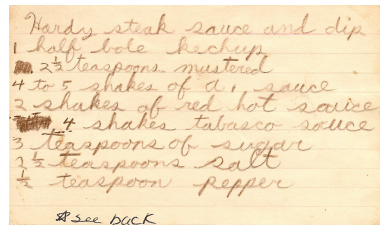 Hardy steak sauce and dip
1 half bole kechup
2 ½ teaspoons mustered
4 to 5 shakes of a, sauce
2 shakes of red hot sauice
4 shakes tabasco souce
3 teaspoons of sugar
2 ½ teaspoons salt
½ teaspoon pepper
see back